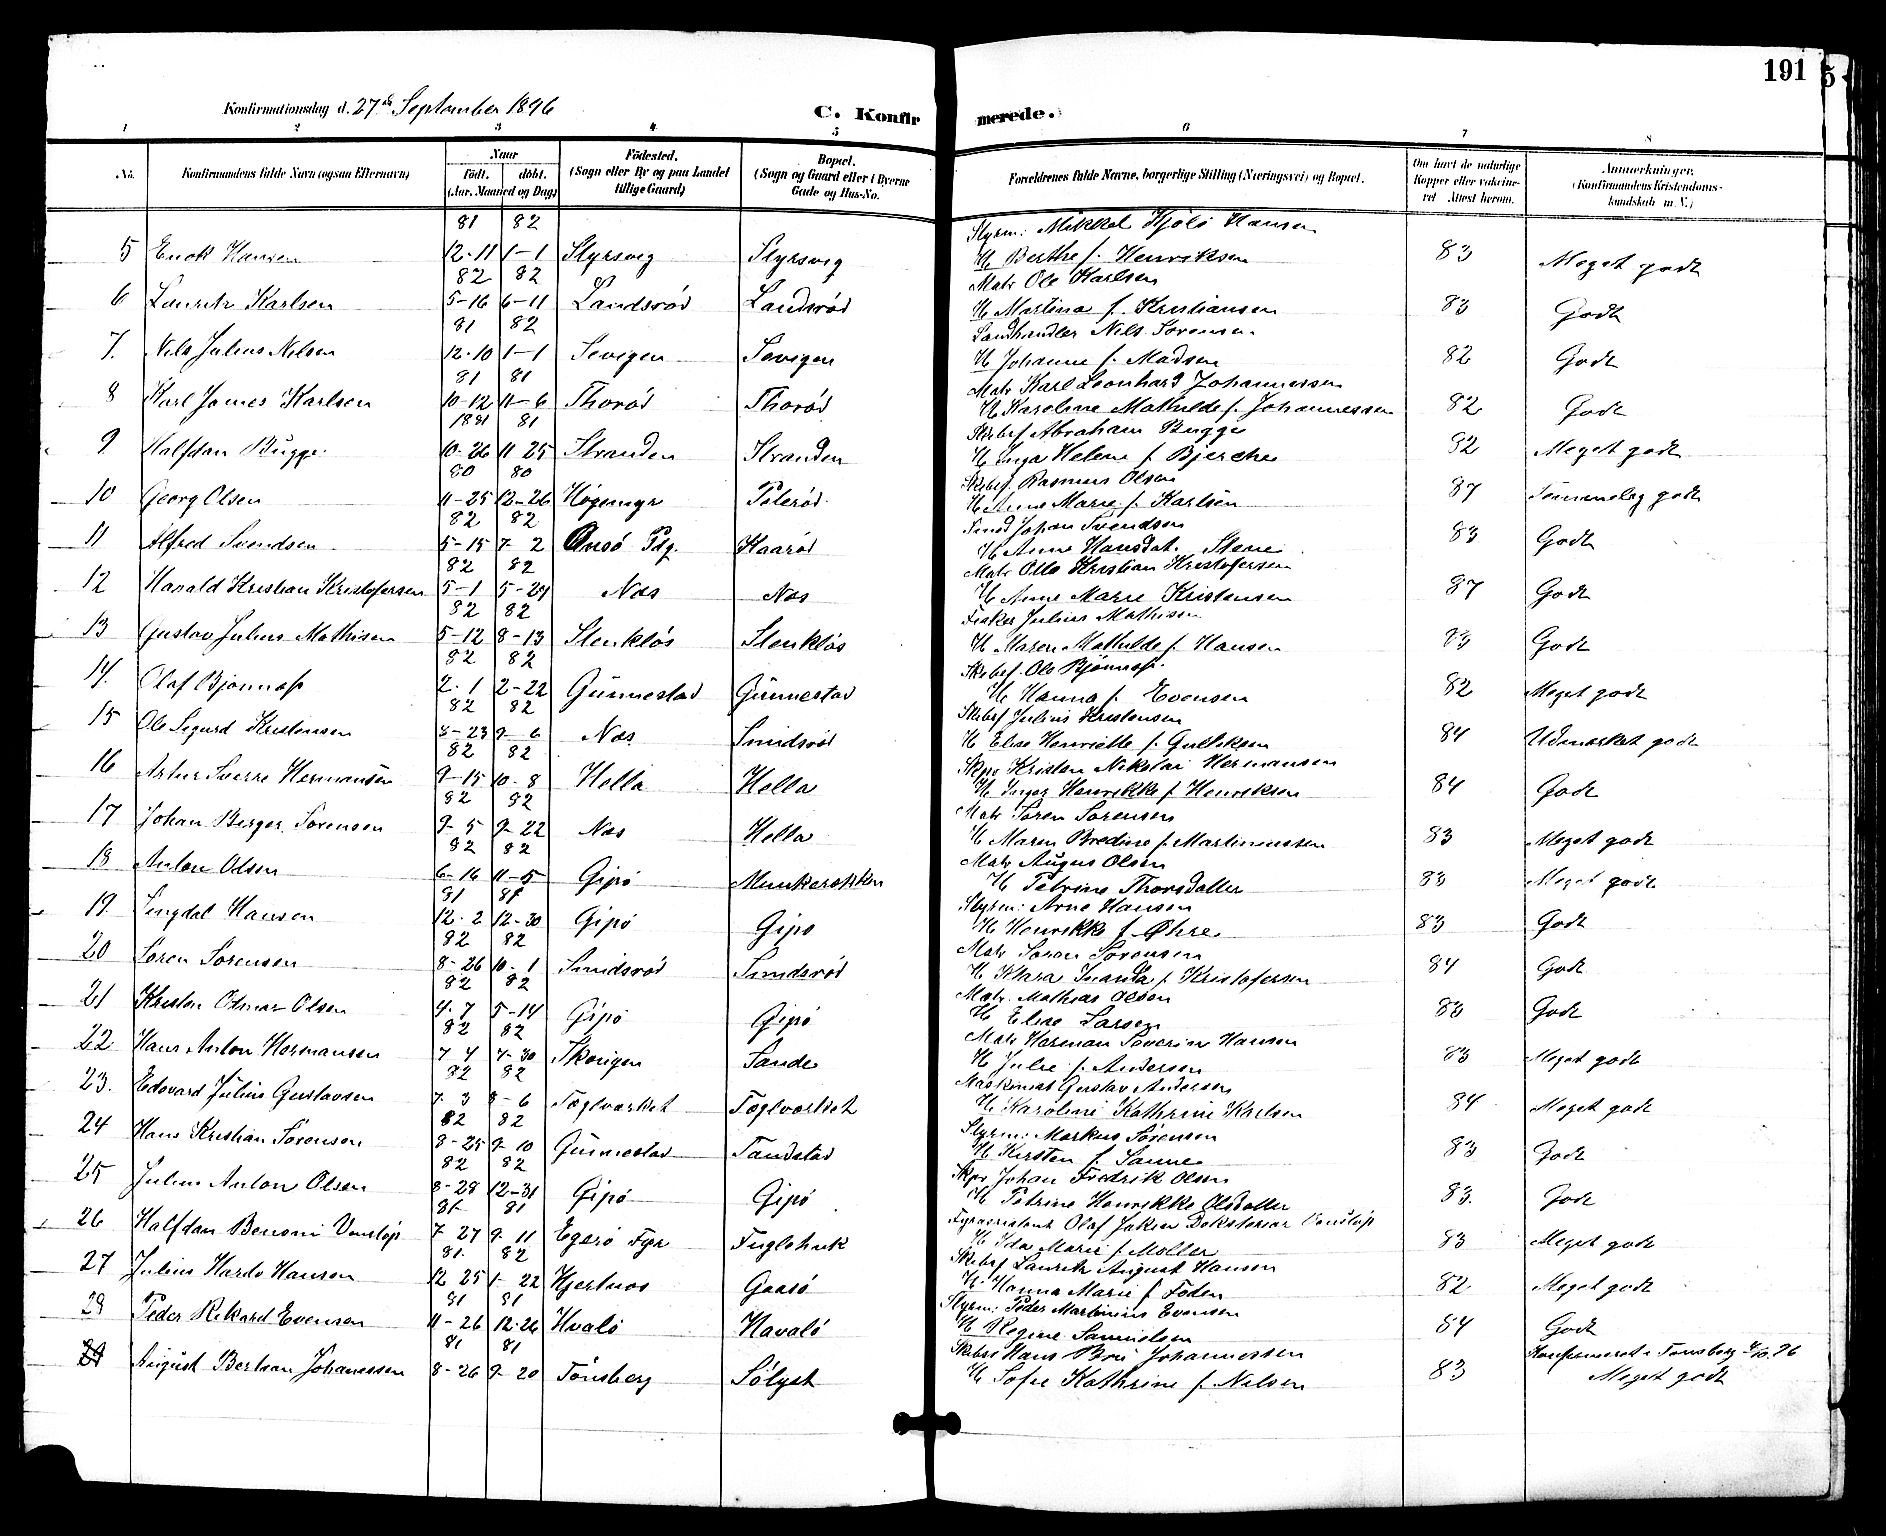 191
5
Konfirmationsdag d. 27de September 1896
C. Konfirmerede.
1 2 3 4 5 6 7 8
No. Konfirmandens fulde Navn (ogsaa Efternavn) Naar Født. døbt. (Aar, Maaned og Dag) Fødested. (Sogn eller By og paa Landet tillige Gaard) Bopæl. (Sogn og Gaard eller i Byerne Gade og Hus-No. Forældrenes fulde Navne, borgerlige Stilling (Næringsvei) og Bopæl. Om havt de naturlige Kopper eller vaccineret Attest herom. Anmærkninger. (Konfirmandens Kristendomskundskab m. V.)
81 82 Styrm: Mikkel Hjølö Hansen
5 Enok Hansen 12-11 1-1 Styrsvig Styrsvig H Berthe f. Henriksen 83 Meget godt
82 82 Matr Ole Karlsen
6 Lauritz Karlsen 5-16 6-11 Landsrød Landsrød H Martina f. Kristiansen 83 Godt
81 82 Landhandler Nils Sorensen
7. Nils Julius Nilsen 12-10 1-1 Sevigen Sevigen H Johanne f. Madsen 82 Godt
81 81 Matr Karl Leonhard Johannessen
8 Karl James Karlsen 10-12 11-6 Thorød Thorød H Karoline Mathilde f. Johannessen 82 Godt
1881 81 Skibsf Abraham Bugge
9 Halfdan Bugge 10-26 11 25 Stranden Stranden H Inga Helene f Bjerche 82 Meget godt
80 80 Skibsf. Rasmus Olsen
10 Georg Olsen 11-25 12-26 Høgemyr Pilerød H Anne Marie f. Karlsen 87 Temmelig godt
82 82 Johan Svendsen
11 Alfred Svendsen 5-15 7-2 Onsø Pdg. Kaarød H Anne Hansdat. Stene 83 Godt
82 82 Matr Otto Kristian Kristofersen
12 Harald Kristian Kristofersen 5-1 5-29 Næs Næs H Anne Marie Kristensen 87 Godt
82 82 Fisker Julius Mathisen
13 Gustav Julius Mathisen 5-12 8-13 Stenkløs Stenkløs H Maren Mathilde f. Hansen 83 Godt
82 82 Skibsf. Ole Bjønnæss
14. Olaf Bjønnæss 2-1 2-22 Gunnestad Gunnestad H Hanna f. Evensen 82 Meget godt
82 82 Skibsf Julius Kristensen
15 Ole Sigurd Kristensen 8-23 9-6 Næs Smidsrød H Elise Henriette f. Gulliksen 84 Udmærket godt
82 82 Skpr Kristen Nikolai Hermansen
16 Artur Sverre Hermansen 9-15 10-8 Hella Hella H Inger Henrikke f Henriksen 84 Godt
82 82 Matr Søren Sørensen
17 Johan Berger Sørensen 9-5 9-22 Næs Hella H Maren Bredine f. Martinussen 83 Meget godt
82 82 Matr August Olsen
18 Anton Olsen 6-16 11-5 Gipø Munkerækken H Petrine Thorsdatter 83 Meget godt
81 81 Styrm: Arne Hansen
19. Hansen 12-2 12-30 Gipø Gipø H Henrikke f Øhre 83 Godt
82 82 Matr Søren Sørensen
20 Søren Sørensen 8-26 10-1 Smidsrød Smidsrød H Klara f Kristofersen 84 Godt
82 82 Matr. Mathias Olsen
21 Kristen Otmar Olsen 4-7 5-14 Gipø Gipø H Elise Larsen 83 Godt
82 82 Matr Herman Severin Hansen
22 Hans Anton Hermansen 7 4 7-30 Skovigen Sande H Julie f. Andersen 83 Meget godt
82 82 Maskinist Gustav Andersen
23. Edvard Julius Gustavsen 7 3 8-6 Teglværket Teglværket H. Karoline Kathrine Karlsen 84 Meget godt
82 82 Styrm: Markus Sørensen
24 Hans Kristian Sørensen 8-25 9-10 Gunnestad Tandstad H Kirsten f. Sanne 83 Godt
82 82 Skpr Johan Fredrik Olsen
25 Julius Anton Olsen 8-28 12-31 Gipø Gipø H Petrine Henrikke Olsdatter 83. Godt
81 81 Fyrassistent Olaf Jakim Venstøp
26 Halfdan Benoni Venstøp 7 27 9-11 Egerø Fyr Fuglehuk H Ida Marie f. Møller 83 Meget godt
81. 82 Skibsf Lauritz August Hansen
27 Julius Hardo Hansen 12 25 1-22 Hjertnæs Gaasø H. Hanna Marie f Foden 82 Meget godt
81 81 Styrm: Peder Martinius Evensen
28 Peder Rikard Evensen 11-26 12-26 Hvalø Havalø H Regine Samuelsen 84 Godt
81 81 Skibsr Hans Brü Johannessen Konfirmeret i Tønsberg 4/10.96
29 August Bertran Johanessen 8-26 9-20 Tønsberg Sølyst H Sofie Kathrine f. Nilsen 83 Meget godt